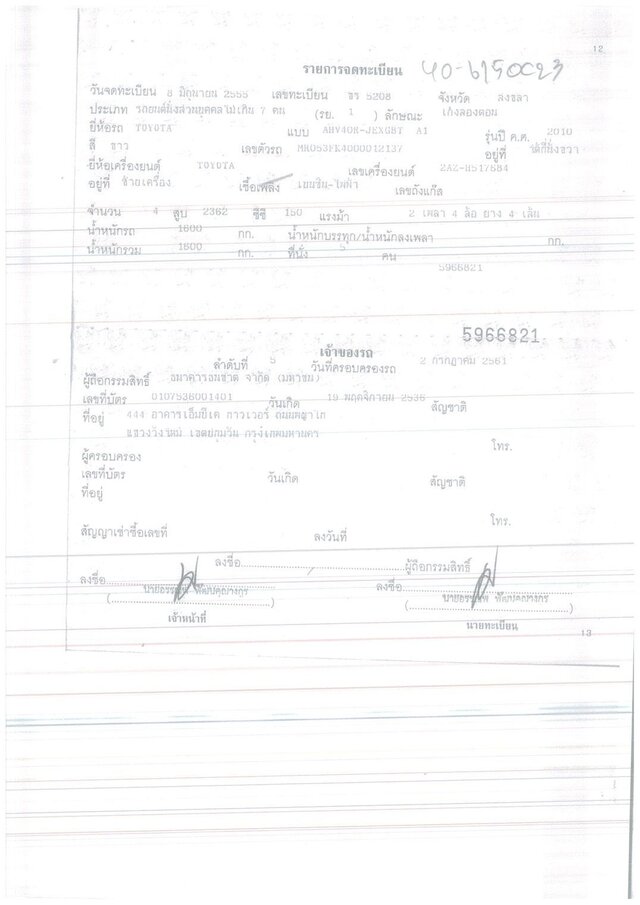 12
รายการจดทะเบียน 40-6150023
วันจดทะเบียน 8 มิถุนายน 2555 เลขทะเบียน 5208 จังหวัด สงขลา
ประเภท รถยนต์นั่งส่วนบุคคลไม่เกิน 7 คน (รย. 1 ) ลักษณะ เก๋งสองตอน
ยี่ห้อรถ TOYOTA แบบ AHV40R-JEXGBT A1 รุ่นปี ค.ศ. 2010
สี ขาว เลขตัวรถ MR053FK4000012137 อยู่ที่
ยี่ห้อเครื่องยนต์ TOYOTA เลขเครื่องยนต์ 2AZ-H517684
อยู่ที่ ซ้ายเครื่อง เชื้อเพลิง เบนซิน-ไฟฟ้า เลขถังแก๊ส
จำนวน 4 สูบ 2362 ซีซี 150 แรงม้า 2 เพลา 4 ล้อ ยาง 4 เส้น
น้ำหนักรถ 1600 กก. น้ำหนักบรรทุก/น้ำหนักลงเพลา กก.
น้ำหนักรวม 1600 กก. ที่นั่ง 5 คน
5966821
5966821
เจ้าของรถ
ลำดับที่ 5 วันที่ครอบครองรถ 2 กรกฎาคม 2561
ผู้ถือกรรมสิทธิ์ ธนาคารธนชาต จำกัด (มหาชน)
เลขที่บัตร 0107536001401 วันเกิด 19 พฤศจิกายน 2536 สัญชาติ
ที่อยู่ 444 อาคารเอ็มบีเค ทาวเวอร์ ถนนพญาไท
แขวงวังใหม่ เขตปทุมวัน กรุงเทพมหานคร
โทร.
ผู้ครอบครอง
เลขที่บัตร วันเกิด สัญชาติ
ที่อยู่
โทร.
สัญญาเช่าซื้อเลขที่ ลงวันที่
ลงชื่อ ผู้ถือกรรมสิทธิ์
ลงชื่อ ลงชื่อ
เจ้าหน้าที่ นายทะเบียน
13